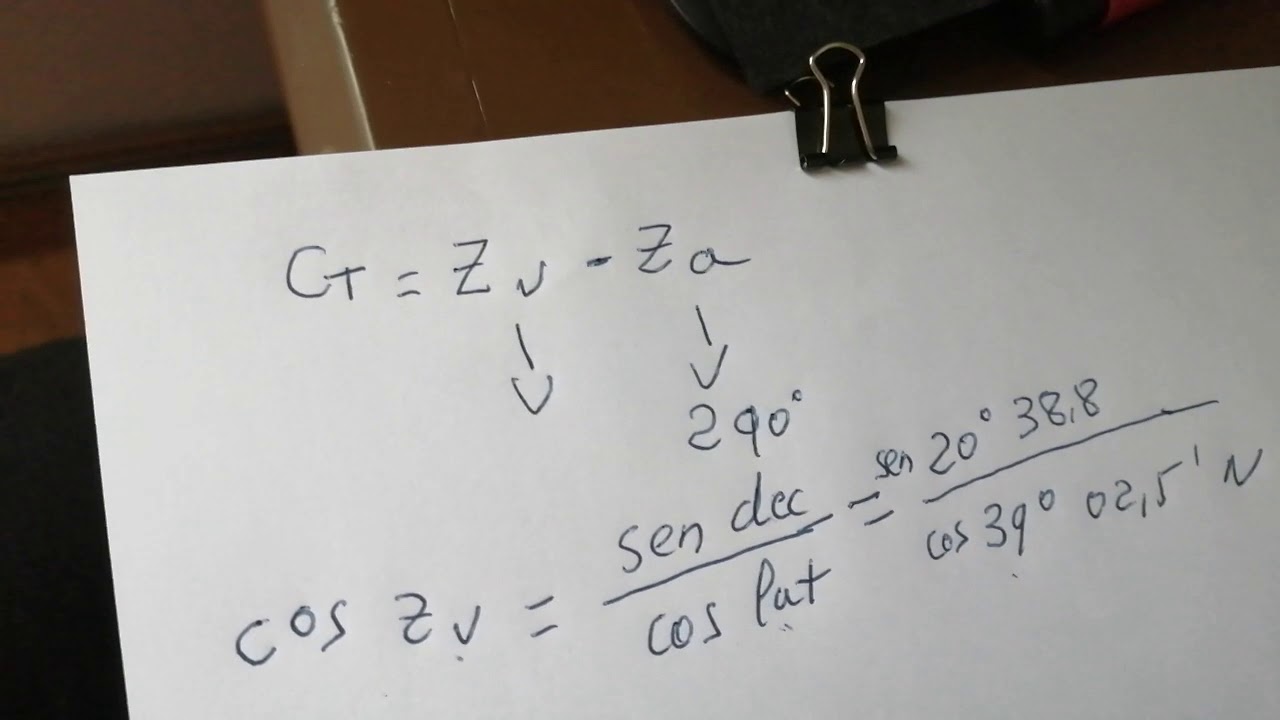 CT = Zv - Za
290°
cos Zv = sen dec / cos lat = sen 20° 38,8 / cos 39° 02,5' N